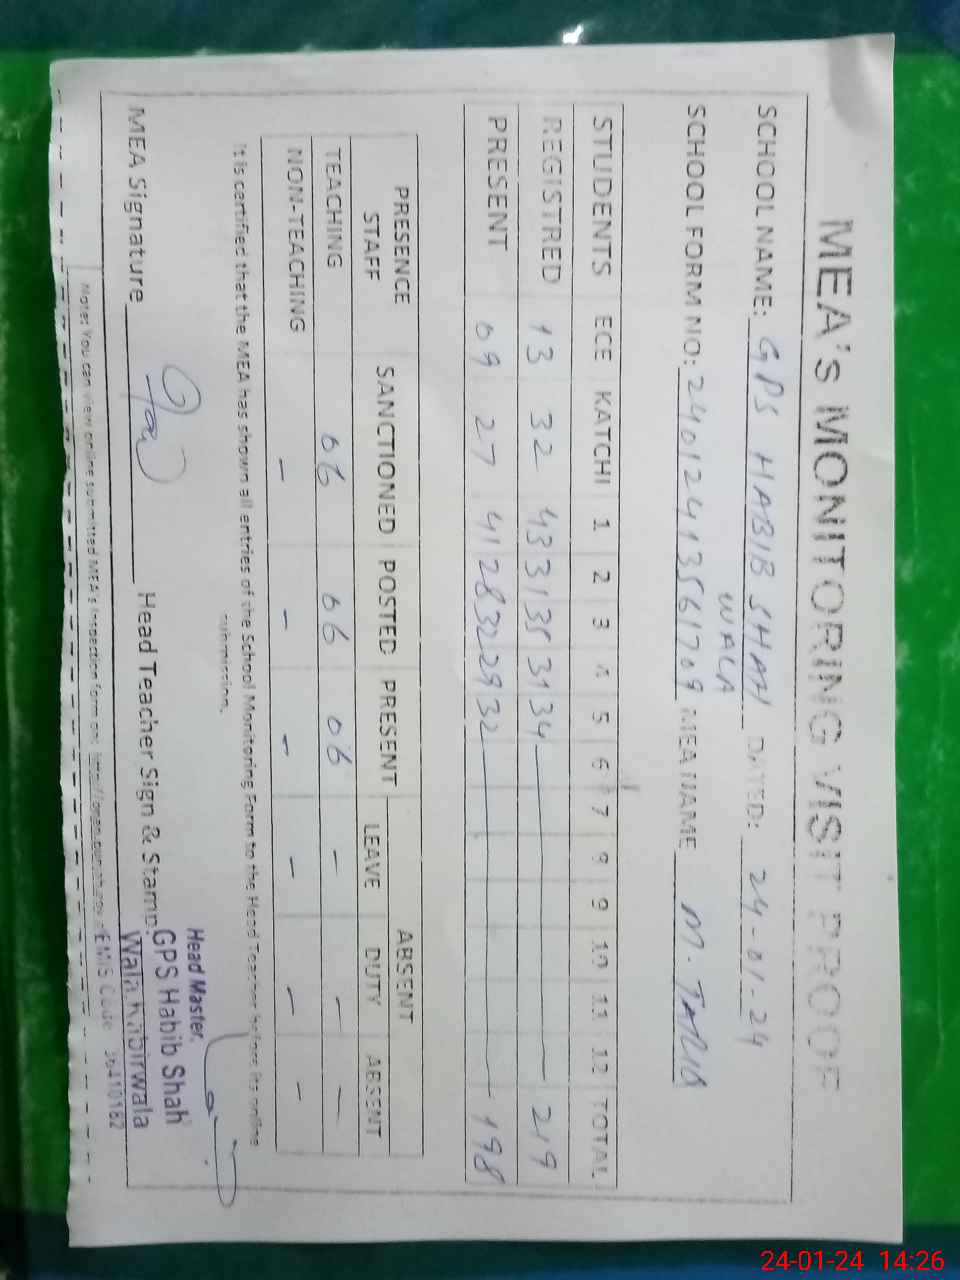 MEA's MONITORING VISIT PROOF
SCHOOL NAME: GPS HABIB SHAH WALA DATED: 24-01-24
SCHOOL FORM NO: 24012413561709 MEA NAME M. TARIQ
STUDENTS ECE KATCHI 1 2 3 4 5 6 7 9 9 10 11 12 TOTAL
REGISTRED 13 32 43 31 35 31 34 — 219
PRESENT 09 27 41 28 32 29 32 — 198
PRESENCE STAFF SANCTIONED POSTED PRESENT ABSENT
LEAVE DUTY ABSENT
TEACHING 06 06 06 – – –
NON-TEACHING – – – – – –
It is certified that the MEA has shown all entries of the School Monitoring Form to the Head Teacher before its online
submission.
MEA Signature Head Teacher Sign & Stamp:
Head Master,
GPS Habib Shah
Wala Kabirwala
EMIS Code 36410182
Note: You can view online submitted MEA's inspection form on:
24-01-24 14:26